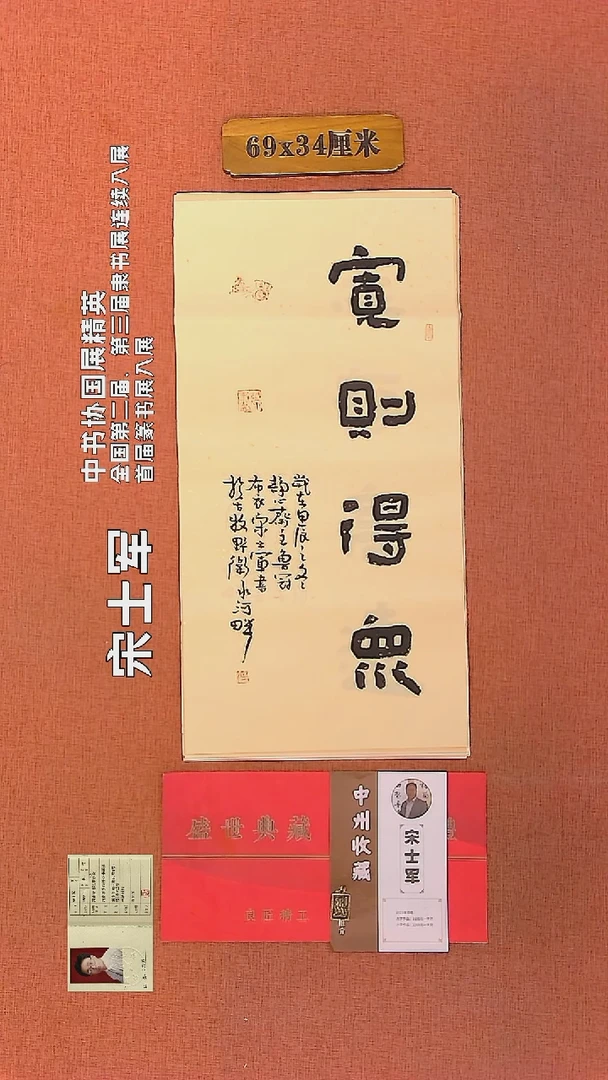 69x34厘米
寬則得眾
歲在甲辰之冬
靜心齋主魯冠
布衣宋士軍書
於古牧野衛水河畔
中书协国展精英
全国第二届、第三届隶书展连续入展
首届篆书展入展
宋士军
盛世典藏
良匠精工
中州收藏
宋士军